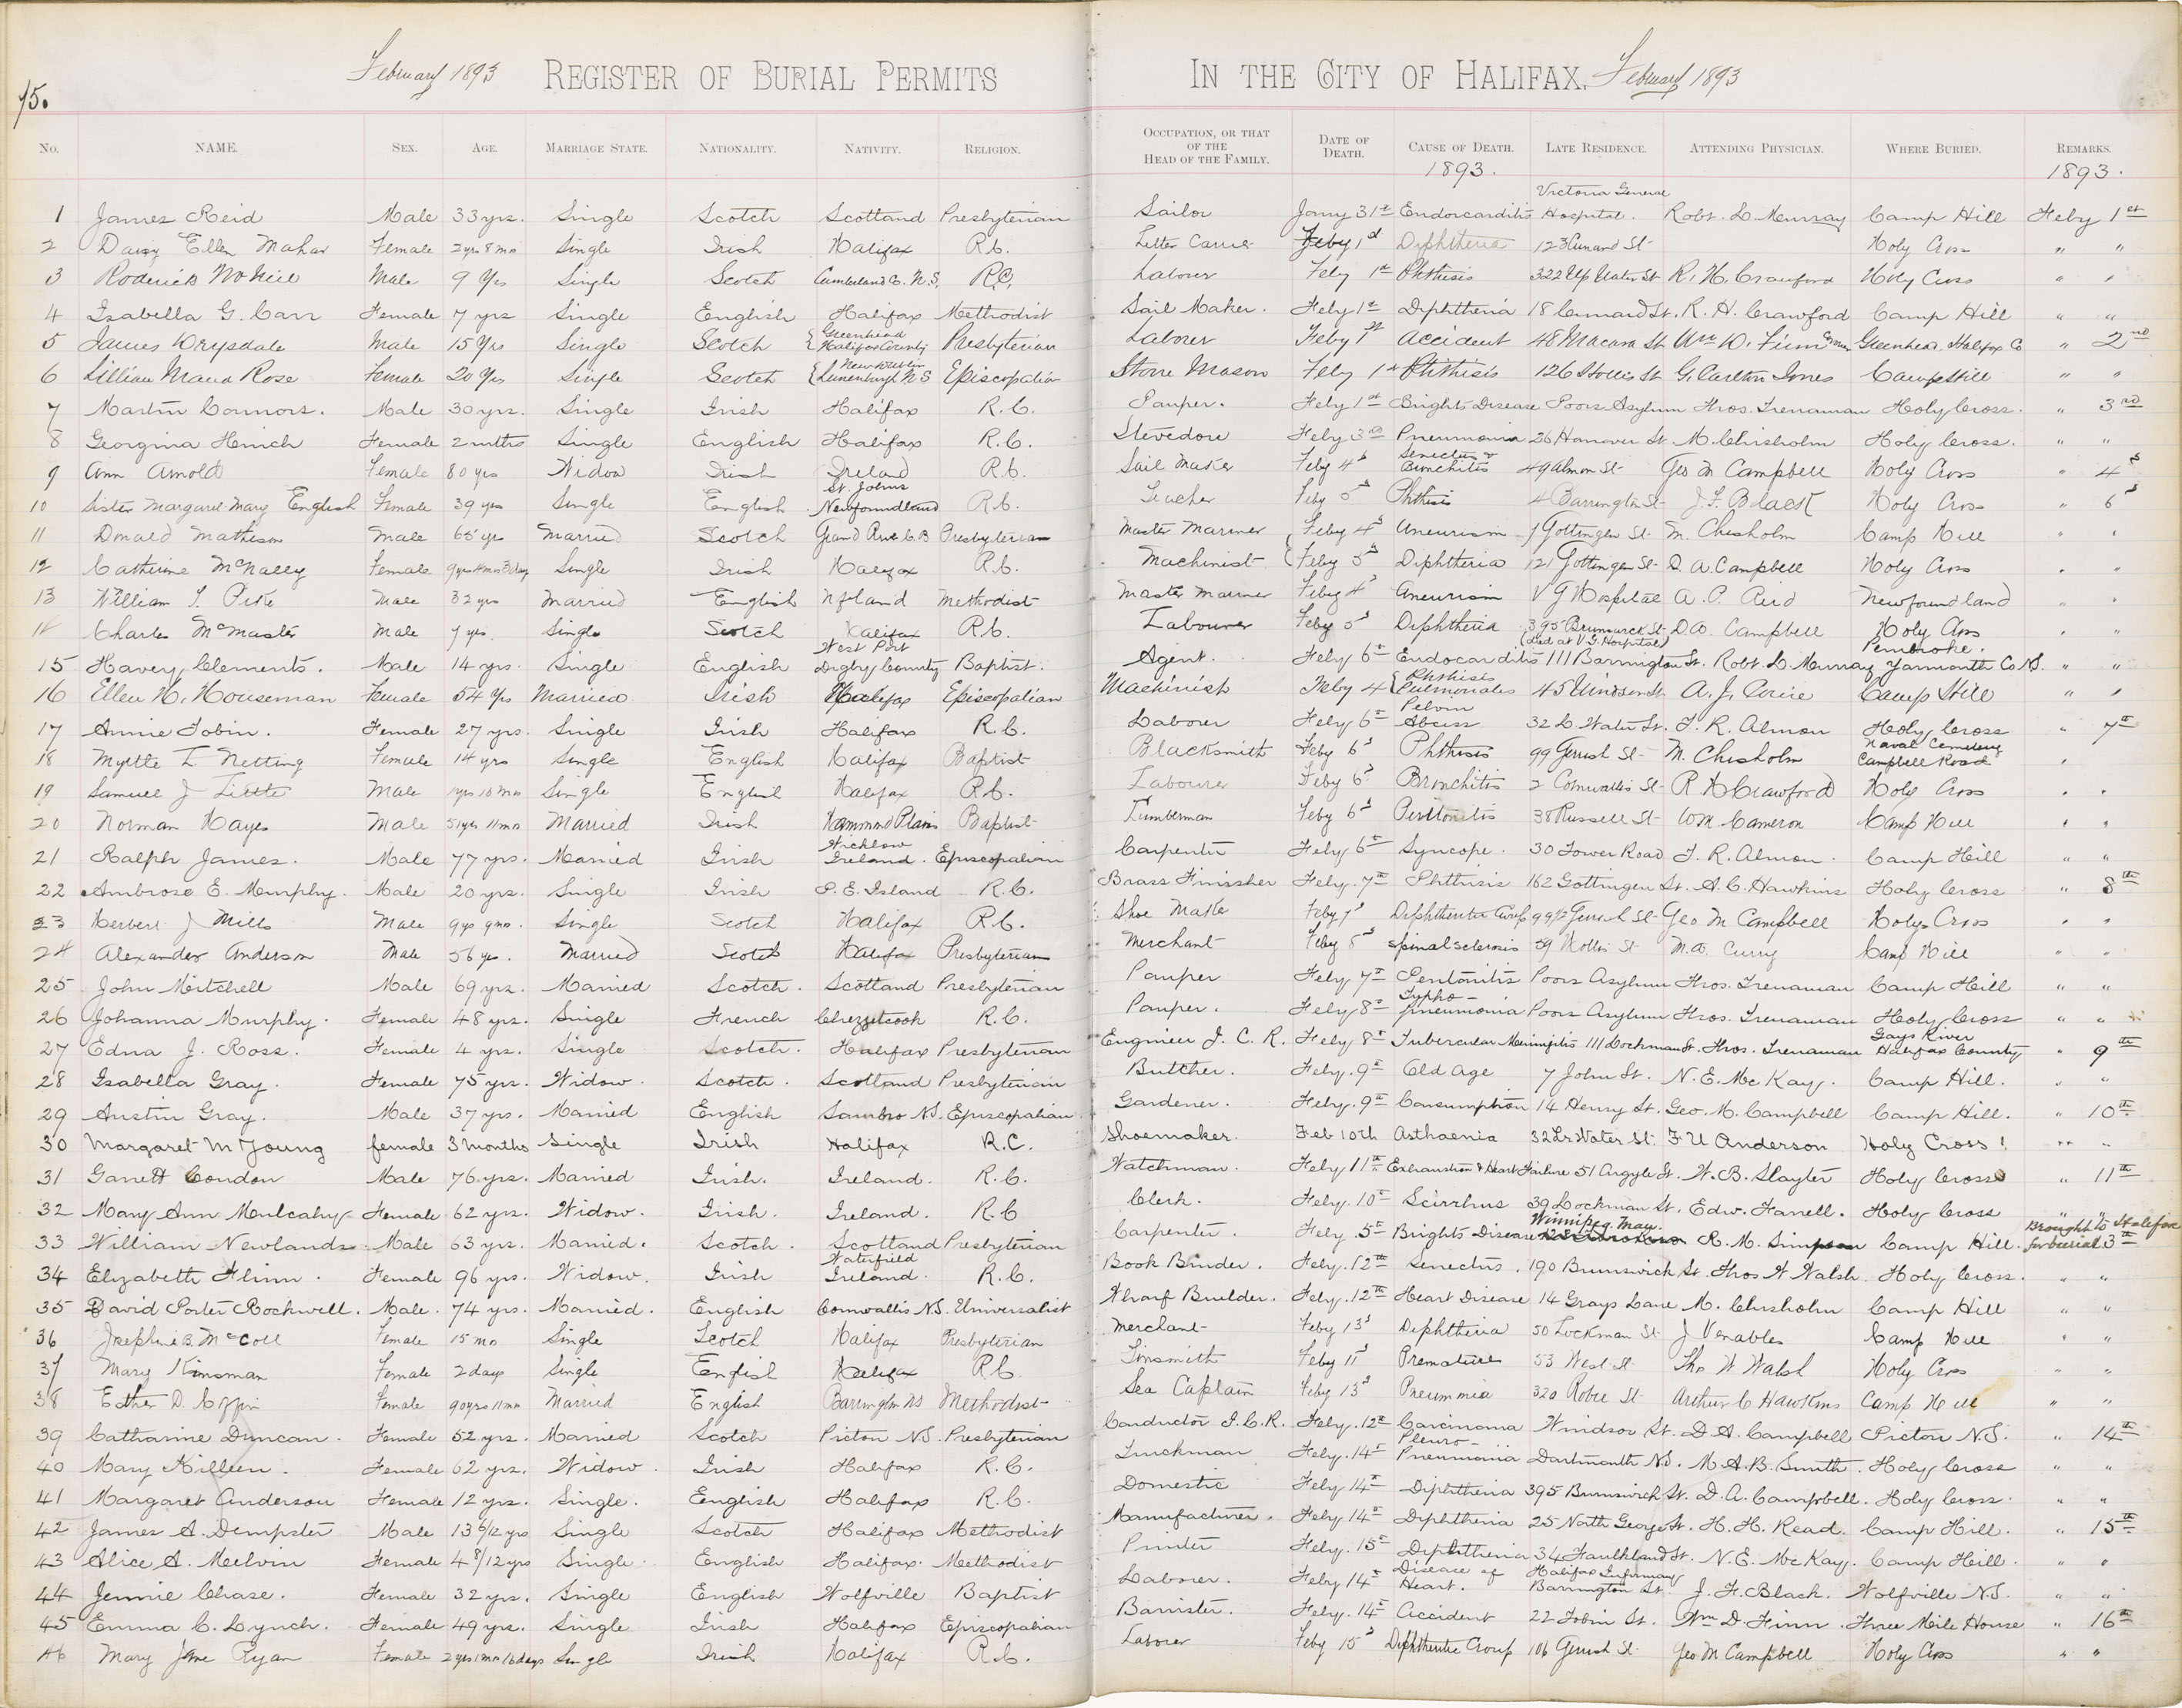 75.
February 1893 REGISTER OF BURIAL PERMITS IN THE CITY OF HALIFAX. February 1893
No. NAME. SEX. AGE. MARRIAGE STATE. NATIONALITY. NATIVITY. RELIGION. OCCUPATION, OR THAT OF THE HEAD OF THE FAMILY. DATE OF DEATH. CAUSE OF DEATH. LATE RESIDENCE. ATTENDING PHYSICIAN. WHERE BURIED. REMARKS.
1893. 1893.
1 James Reid Male 33 yrs. Single Scotch Scotland Presbyterian Sailor Jany 31st Endorcarditis Victoria General Hospital. Robt. D. Murray Camp Hill Feby 1st
2 Daisy Ellen Mahar Female 2 yrs 8 mo Single Irish Halifax R.C. Letter Carrier Feby 1st Diphtheria 123 Cunard St Holy Cross " "
3 Roderick McNeil Male 9 Yrs Single Scotch Cumberland C. N.S. R.C. Labour Feby 1st Phthisis 322 Up Water St R. H. Crawford Holy Cross " "
4 Isabella G. Carr Female 7 yrs Single English Halifax Methodist Sail Maker. Feby 1st Diphtheria 18 St. R. H. Crawford Camp Hill " "
5 James Drysdale Male 15 Yrs Single Scotch Greenhead Halifax County Presbyterian Laborer Feby 1st Accident 48 Macara St Wm D. Finn Greenhead. Halifax Co " 2nd
6 Lillian Maud Rose Female 20 Yrs Single Scotch New Dublin Lunenburgh N S Episcopalian Stone Mason Feby 1st Phthisis 126 Hollis St G. Carlton Jones Camp Hill " "
7 Martin Connors. Male 30 yrs. Single Irish Halifax R.C. Pauper. Feby 1st Brights Disease Poors Asylum Thos. Trenaman Holy Cross. " 3rd
8 Georgina Hinch Female 2 mths Single English Halifax R.C. Stevedore Feby 3rd Pneumonia 26 Hanover St. M. Chisholm Holy Cross. " "
9 Ann Arnold Female 80 yrs Widow Irish Ireland R.C. Sail Maker Feby 4th Senectus & Bronchitis 49 Almon St Geo M Campbell Holy Cross " 4th
10 Sister Margaret Mary English Female 39 yrs Single English St. Johns Newfoundland R.C. Teacher Feby 5th Phthisis 4 Barrington St J. F. Black Holy Cross " 6th
11 Donald Matheson Male 65 yrs Married Scotch Grand River C B Presbyterian Master Mariner Feby 4th Aneurism Gottingen St. M. Chisholm Camp Hill " "
12 Catherine McNally Female Single Irish Halifax R.C. Machinist Feby 5th Diphtheria 121 Gottingen St D. A. Campbell Holy Cross " "
13 William J. Pike Male 32 yrs Married English Nfland Methodist Master Mariner Feby 4th Aneurism V G Hospital A. P. Reid Newfoundland " "
14 Charles McMaster Male 7 yrs. Single Scotch Halifax R.C. Labourer Feby 5th Diphtheria 395 Brunswick St (died at V.G. Hospital) D A. Campbell Holy Cross " "
15 Havery Clements. Male 14 yrs. Single English West Port Digby County Baptist. Agent. Feby 6th Endocarditis 111 Barrington St. Robt. D. Murray Pembroke. Yarmouth Co N.S. " "
16 Ellen H. Houseman Female 54 Yrs Married Irish Halifax Episcopalian Machinist Feby 4 Phthisis Pulmonales 45 Windsor St. A. J. Cowie Camp Hill " "
17 Annie Tobin. Female 27 yrs. Single Irish Halifax R.C. Laborer Feby 6th Pelvin Abcess 32 L Water St. T. R. Almon Holy Cross " 7th
18 Myrtle I Netting Female 14 yrs Single English Halifax Baptist Blacksmith Feby 6th Phthisis 99 Gerrish St M. Chisholm Naval Cemetery Campbell Road "
19 Samuel J Little Male 1 yrs 10 mo Single English Halifax R.C. Labourer Feby 6th Bronchitis 2 Cornwallis St R H Crawford Holy Cross " "
20 Norman Hayes Male 51 yrs 11 mo Married Irish Hammond Plains Baptist Lumberman Feby 6th Peritonitis 38 Russell St W M Cameron Camp Hill " "
21 Ralph James. Male 77 yrs. Married Irish Wicklow Ireland. Episcopalian Carpenter Feby 6th Syncope. 30 Tower Road T. R. Almon. Camp Hill " "
22 Ambrose E. Murphy. Male 20 yrs. Single Irish P. E. Island R.C. Brass Finissher Feby. 7th Phthisis 162 Gottingen St. A. C. Hawkins Holy Cross " 8th
23 Herbert J Mills Male 9 yrs 9 mo. Single Scotch Halifax R.C. Shoe Maker Feby 7th Diphtheritic Croup 99½ Gerrish St Geo M Campbell Holy Cross " "
24 Alexander Anderson Male 56 yrs. Married Scotch Halifax Presbyterian Merchant Feby 8th Spinal Sclerosis 59 Hollis St M. A. Curry Camp Hill " "
25 John Mitchell Male 69 yrs. Married Scotch. Scotland Presbyterian Pauper Feby 7th Peritonitis Poors Asylum Thos. Trenaman Camp Hill " "
26 Johanna Murphy. Female 48 yrs. Single French Chezzetcook R.C. Pauper. Feby 8th Typho- pneumonia Poors Asylum Thos. Trenaman Holy Cross " "
27 Edna J. Ross. Female 4 yrs. Single Scotch. Halifax Presbyterian Engineer I. C. R. Feby 8th Tubercular Meningitis 111 Lockman St. Thos. Trenaman Gays River Halifax County " 9th
28 Isabella Gray. Female 75 yrs. Widow. Scotch. Scotland Presbyterian Butcher. Feby. 9th Old Age 7 John St. N. E. McKay. Camp Hill. " "
29 Austin Gray. Male 37 yrs. Married English Sambro N.S. Episcopalian Gardener. Feby. 9th Consumption 14 Henry St. Geo. M. Campbell Camp Hill. " 10th
30 Margaret M Young female 3 months Single Irish Halifax R.C. Shoemaker. Feb 10th Asthaenia 32 Lr Water St. F U Anderson Holy Cross! " "
31 Garrett Condon Male 76 yrs. Married Irish. Ireland. R.C. Watchman. Feby 11th Exhaustion & Heart Failure 51 Argyle St. W. B. Slayter Holy Cross " 11th
32 Mary Ann Mulcahy Female 62 yrs. Widow. Irish. Ireland. R.C Clerk. Feby. 10th Scirrhus 39 Lockman St. Edw. Farrell. Holy Cross " "
33 William Newlands Male 63 yrs. Married. Scotch. Scotland Presbyterian Carpenter. Feby. 5th Brights Disease Winnipeg. Man. R. M. Simpson Camp Hill. Brought to Halifax for burial 13th
34 Elizabeth Flinn. Female 96 yrs. Widow. Irish Waterfield Ireland. R.C. Book Binder. Feby. 12th Senectus. 190 Brunswick St. Thos W Walsh. Holy Cross. " "
35 David Porter Rockwell. Male. 74 yrs. Married. English Cornwallis N.S. Universalist Wharf Builder. Feby. 12th Heart Disease 14 Grays Lane M. Chisholm Camp Hill " "
36 Josephine B. McColl Female 15 mo Single Scotch Halifax Presbyterian Merchant Feby 13th Diphtheria 50 Lockman St J Venables Camp Hill " "
37 Mary Kinsman Female 2 days Single English Halifax R.C. Tinsmith Feby 11th Premature 53 West St Tho W Walsh Holy Cross " "
38 Esther D. Coffin Female 90 yrs 11 mo Married English Barrington NS Methodist Sea Captain Feby 13th Pneumonia 320 Robie St Arthur C Hawkins Camp Hill " "
39 Catharine Duncan. Female 52 yrs. Married Scotch Pictou N.S. Presbyterian Conductor I.C.R. Feby. 12th Carcinoma Windsor St. D. A. Campbell Pictou N.S. " 14th
40 Mary Killeen. Female 62 yrs. Widow. Irish Halifax R.C. Truckman Feby. 14th Pleuro- Pneumonia Dartmouth N.S. M. A. B. Smith. Holy Cross " "
41 Margaret Anderson Female 12 yrs. Single. English Halifax R.C. Domestic Feby 14th Diphtheria 395 Brunswick St. D. A. Campbell. Holy Cross. " "
42 James A. Dempster Male 13 6/12 yrs Single Scotch Halifax Methodist Manufacturer. Feby 14th Diphtheria 25 North George St. H. H. Read. Camp Hill. " 15th
43 Alice A. Melvin Female 4 8/12 yrs Single. English Halifax. Methodist Printer Feby. 15th Diphtheria 34 Faulkland St. N. E. McKay. Camp Hill. " "
44 Jennie Chase. Female 32 yrs. Single English Wolfville Baptist Laborer. Feby 14th Disease of Heart. Halifax Infirmary Barrington St. J. F. Black. Wolfville N.S. " "
45 Emma C. Lynch. Female 49 yrs. Single Irish Halifax Episcopalian Barrister. Feby. 14th Accident 22 Tobin St. Wm D. Finn. Three Mile House " 16th
46 Mary Jane Ryan Female 2 yrs 1 mo 16 days Single Irish Halifax R.C. Laborer Feby 15th Diphtheritic Croup 106 Gerrish St Geo M Campbell Holy Cross " "